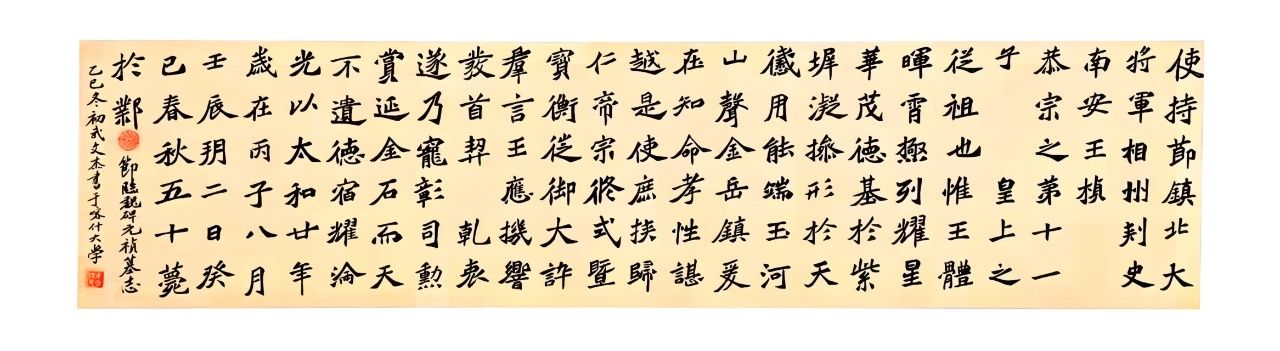 使持節鎮北大
将軍相州刾史
南安王楨
恭宗之第十一
子　皇上之
従祖也惟王體
暉霄極列耀星
華茂德基於紫
墀凝操形於天
儀用能端玉河
山聲金岳鎮爰
在知命孝性諶
越是使庶族歸
仁帝宗攸式暨
寶衡徙御大訊
羣言王應機響
發首契乹衷
遂乃寵彰司勲
賞延金石而天
不遺德宿耀淪
光以太和廿年
歲在丙子八月
壬辰玥二日癸
巳春秋五十薨
於鄴
節臨魏碑元禎墓志
乙巳冬初武文杰書于喀什大学